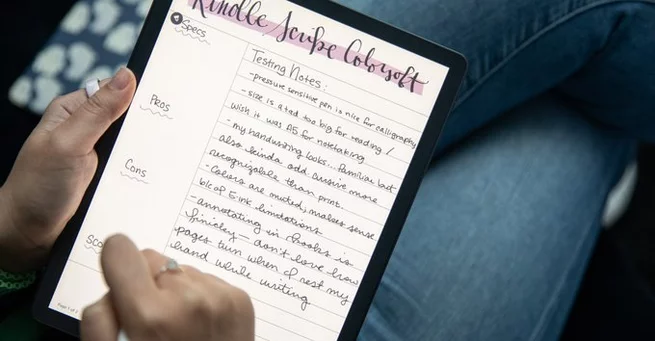 Kindle Scribe Colorsoft
Specs
Pros
Cons
Testing Notes:
- pressure sensitive pen is nice for calligraphy
- size is a tad too big for reading /
wish it was A5 for notetaking
- my handwriting looks... familiar but
also kinda odd cursive more
recognizable than print.
- Colors are muted, makes sense
b/c of E-ink limitations
- annotating in books is
finicky - don't love how
pages turn when I rest my
hand while writing